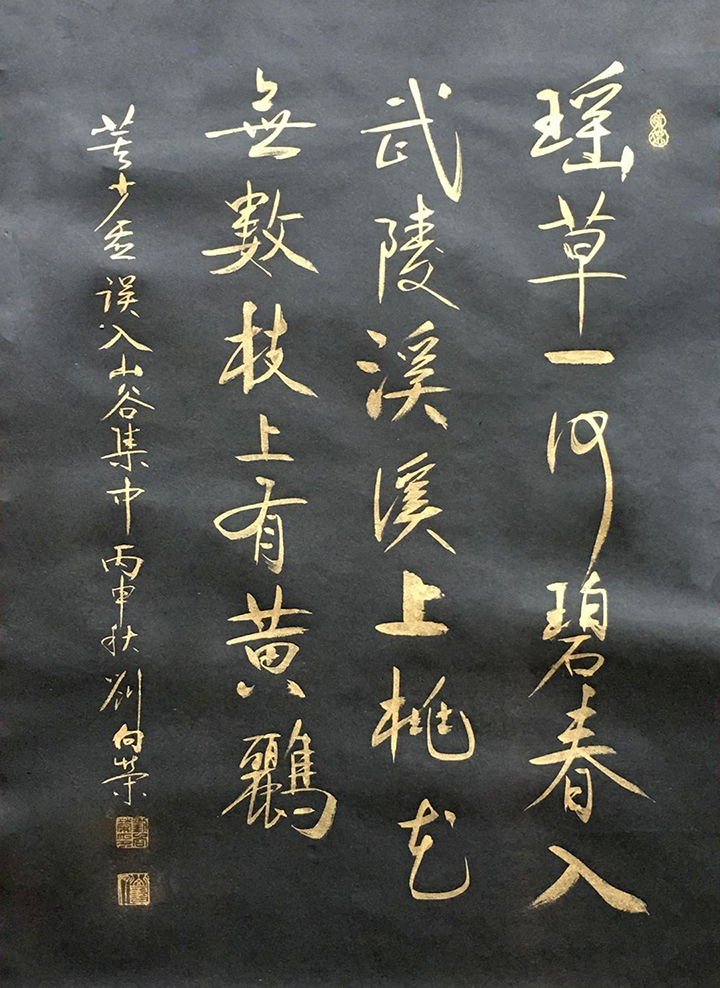 瑶草一何碧春入
武陵溪溪上桃花
無數枝上有黄鸝
莫少虚误入山谷集中丙申秋刘向荣